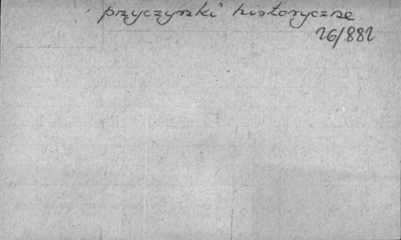 przyczynki historyczne
26/882